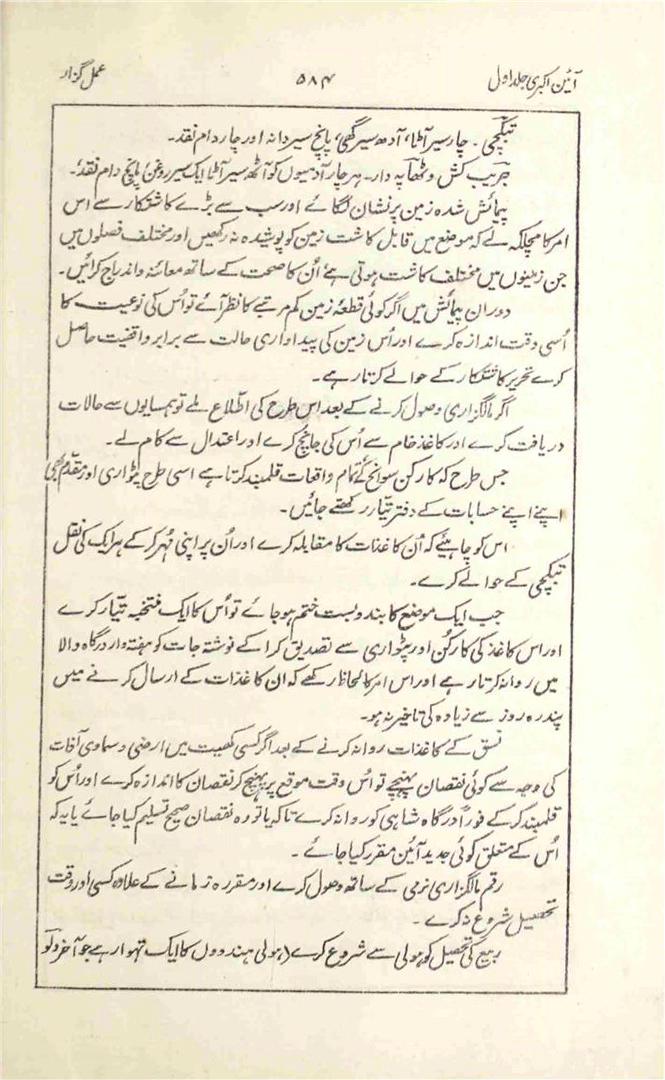 آئین اکبری جلد اول ۵۸۴ عمل گزار
تبکچی ۔ چار سیر آٹا، آدھ سیر گھی، پانچ سیر دانہ اور چار دام نقد۔
جریب کش و تھاپہ دار۔ ہر چار آدمیوں کو آٹھ سیر آٹا ایک سیر روغن، پانچ دام نقد۔
پیمائش شدہ زمین پر نشان لگائے اور سب سے بڑے کاشتکار سے اس
امر کا مچلکہ لے کہ موضع میں قابل کاشت زمین کو پوشیدہ نہ رکھیں اور مختلف فصلوں میں
جن زمینوں میں مختلف کاشت ہوتی ہے اُن کا صحت کے ساتھ معائنہ و اندراج کرائیں۔
دوران پیمائش میں اگر کوئی قطعۂ زمین کم مرتبے کا نظر آئے تو اُس کی نوعیت کا
اُسی وقت اندازہ کرے اور اُس زمین کی پیداواری حالت سے برابر واقفیت حاصل
کرے تحریر کاشتکار کے حوالے کرتا رہے۔
اگر مالگزاری وصول کرنے کے بعد اس طرح کی اطلاع ملے تو ہمسایوں سے حالات
دریافت کرے اور کاغذ خام سے اُس کی جانچ کرے اور اعتدال سے کام لے۔
جس طرح کہ کارکن سوانح کے تمام واقعات قلمبند کرتا ہے اسی طرح پٹواری اور مقدم بھی
اپنے اپنے حسابات کے دفتر تیار رکھتے جائیں۔
اس کو چاہیئے کہ اُن کاغذات کا مقابلہ کرے اور اُن پر اپنی مُہر کر کے ہر ایک کی نقل
تبکچی کے حوالے کرے۔
جب ایک موضع کا بندوبست ختم ہو جائے تو اُس کا ایک منتخبہ تیار کرے
اور اس کاغذ کی کارکن اور پٹواری سے تصدیق کرا کے نوشتہ جات کو ہفتہ وار درگاہ والا
میں روانہ کرتا رہے اور اس امر کا لحاظ رکھے کہ ان کاغذات کے ارسال کرنے میں
پندرہ روز سے زیادہ کی تاخیر نہ ہو۔
نسق کے کاغذات روانہ کرنے کے بعد اگر کسی کھیت میں ارضی و سماوی آفات
کی وجہ سے کوئی نقصان پہنچے تو اُس وقت موقع پر پہنچ کر نقصان کا اندازہ کرے اور اُس کو
قلمبند کر کے فوراً درگاہ شاہی کو روانہ کرے تاکہ یا تو وہ نقصان صحیح تسلیم کیا جائے یا یہ کہ
اُس کے متعلق کوئی جدید آئین مقرر کیا جائے ۔
رقم مالگزاری نرمی کے ساتھ وصول کرے اور مقررہ زمانے کے علاوہ کسی اور وقت
تحصیل شروع نہ کرے ۔
ربیع کی تحصیل کو ہولی سے شروع کرے (ہولی ہندووں کا ایک تہوار ہے جو آخر